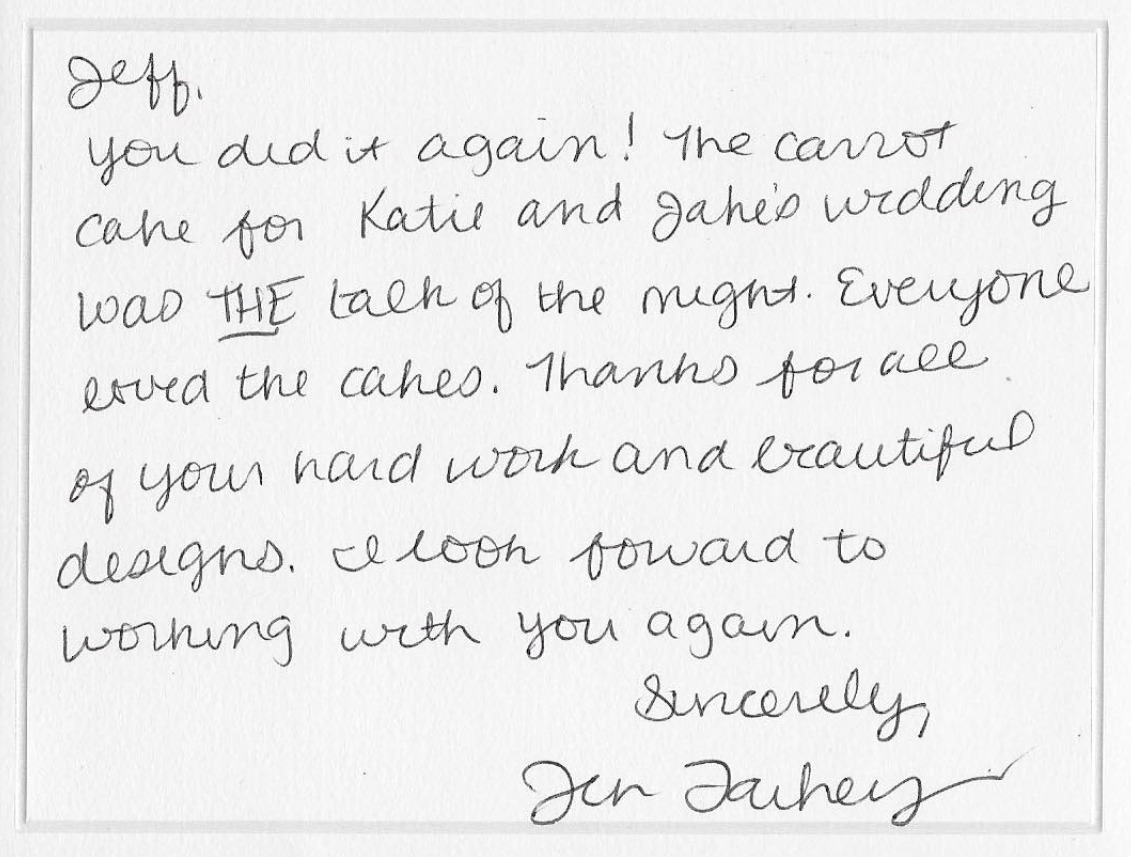 Jeff,
You did it again! The carrot
cake for Katie and Jake's wedding
was THE talk of the night. Everyone
loved the cakes. Thanks for all
of your hard work and beautiful
designs. I look foward to
working with you again.
Sincerely,
Jen